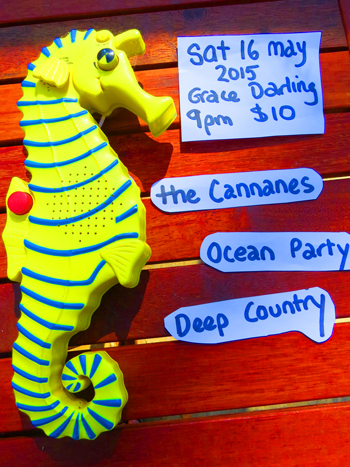 Sat 16 may
2015
Grace Darling
9pm $10
the Cannanes
Ocean Party
Deep Country